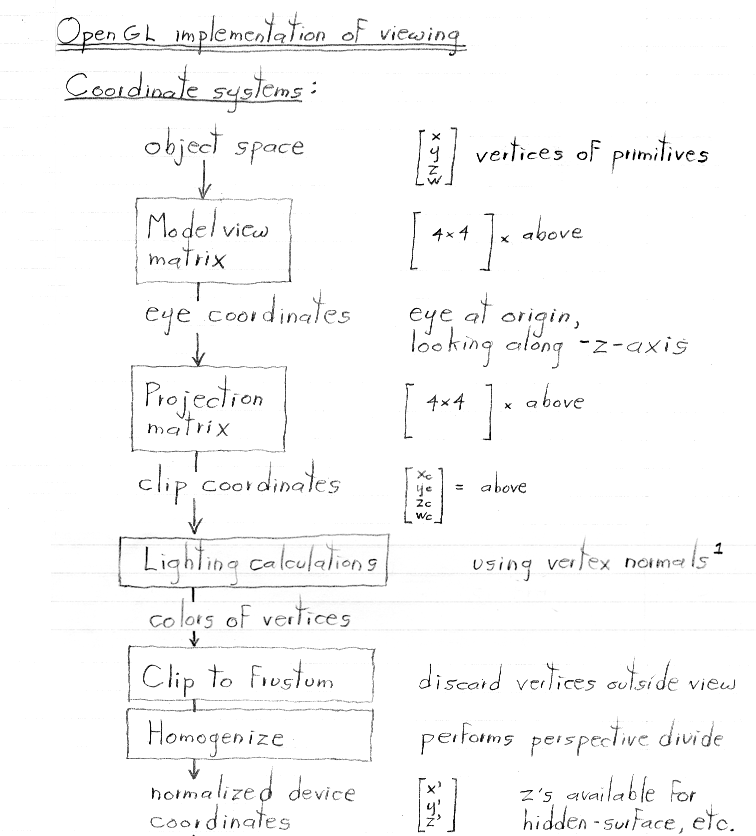 OpenGL implementation of viewing
Coordinate systems:
object space
[x y z w] vertices of primitives
Modelview
matrix
[ 4×4 ] × above
eye coordinates
eye at origin,
looking along -z-axis
Projection
matrix
[ 4×4 ] × above
clip coordinates
[xc yc zc wc] = above
Lighting calculations
using vertex normals¹
colors of vertices
Clip to Frustum
discard vertices outside view
Homogenize
performs perspective divide
normalized device
coordinates
[x' y' z']
z's available for
hidden-surface, etc.